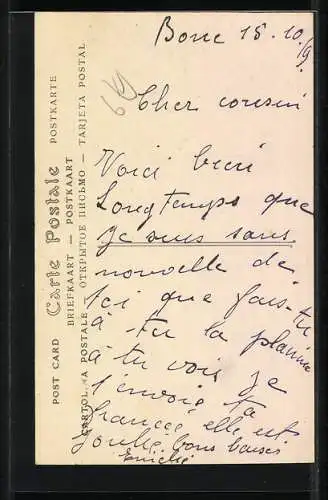 Bone 18.10/9.
Cher cousin
Voici bien
Longtemps que
Je suis sans
nouvelle de
toi que fais-tu
à tu la plaine
à tu vois je
t'envoie ta
francée elle est
Jolie bons baisers
POST CARD
Carte Postale
POSTKARTE
BRIEFKAART — POSTKAART
POSTALE — ОТКРЫТОЕ ПИСЬМО — TARJETA POSTAL